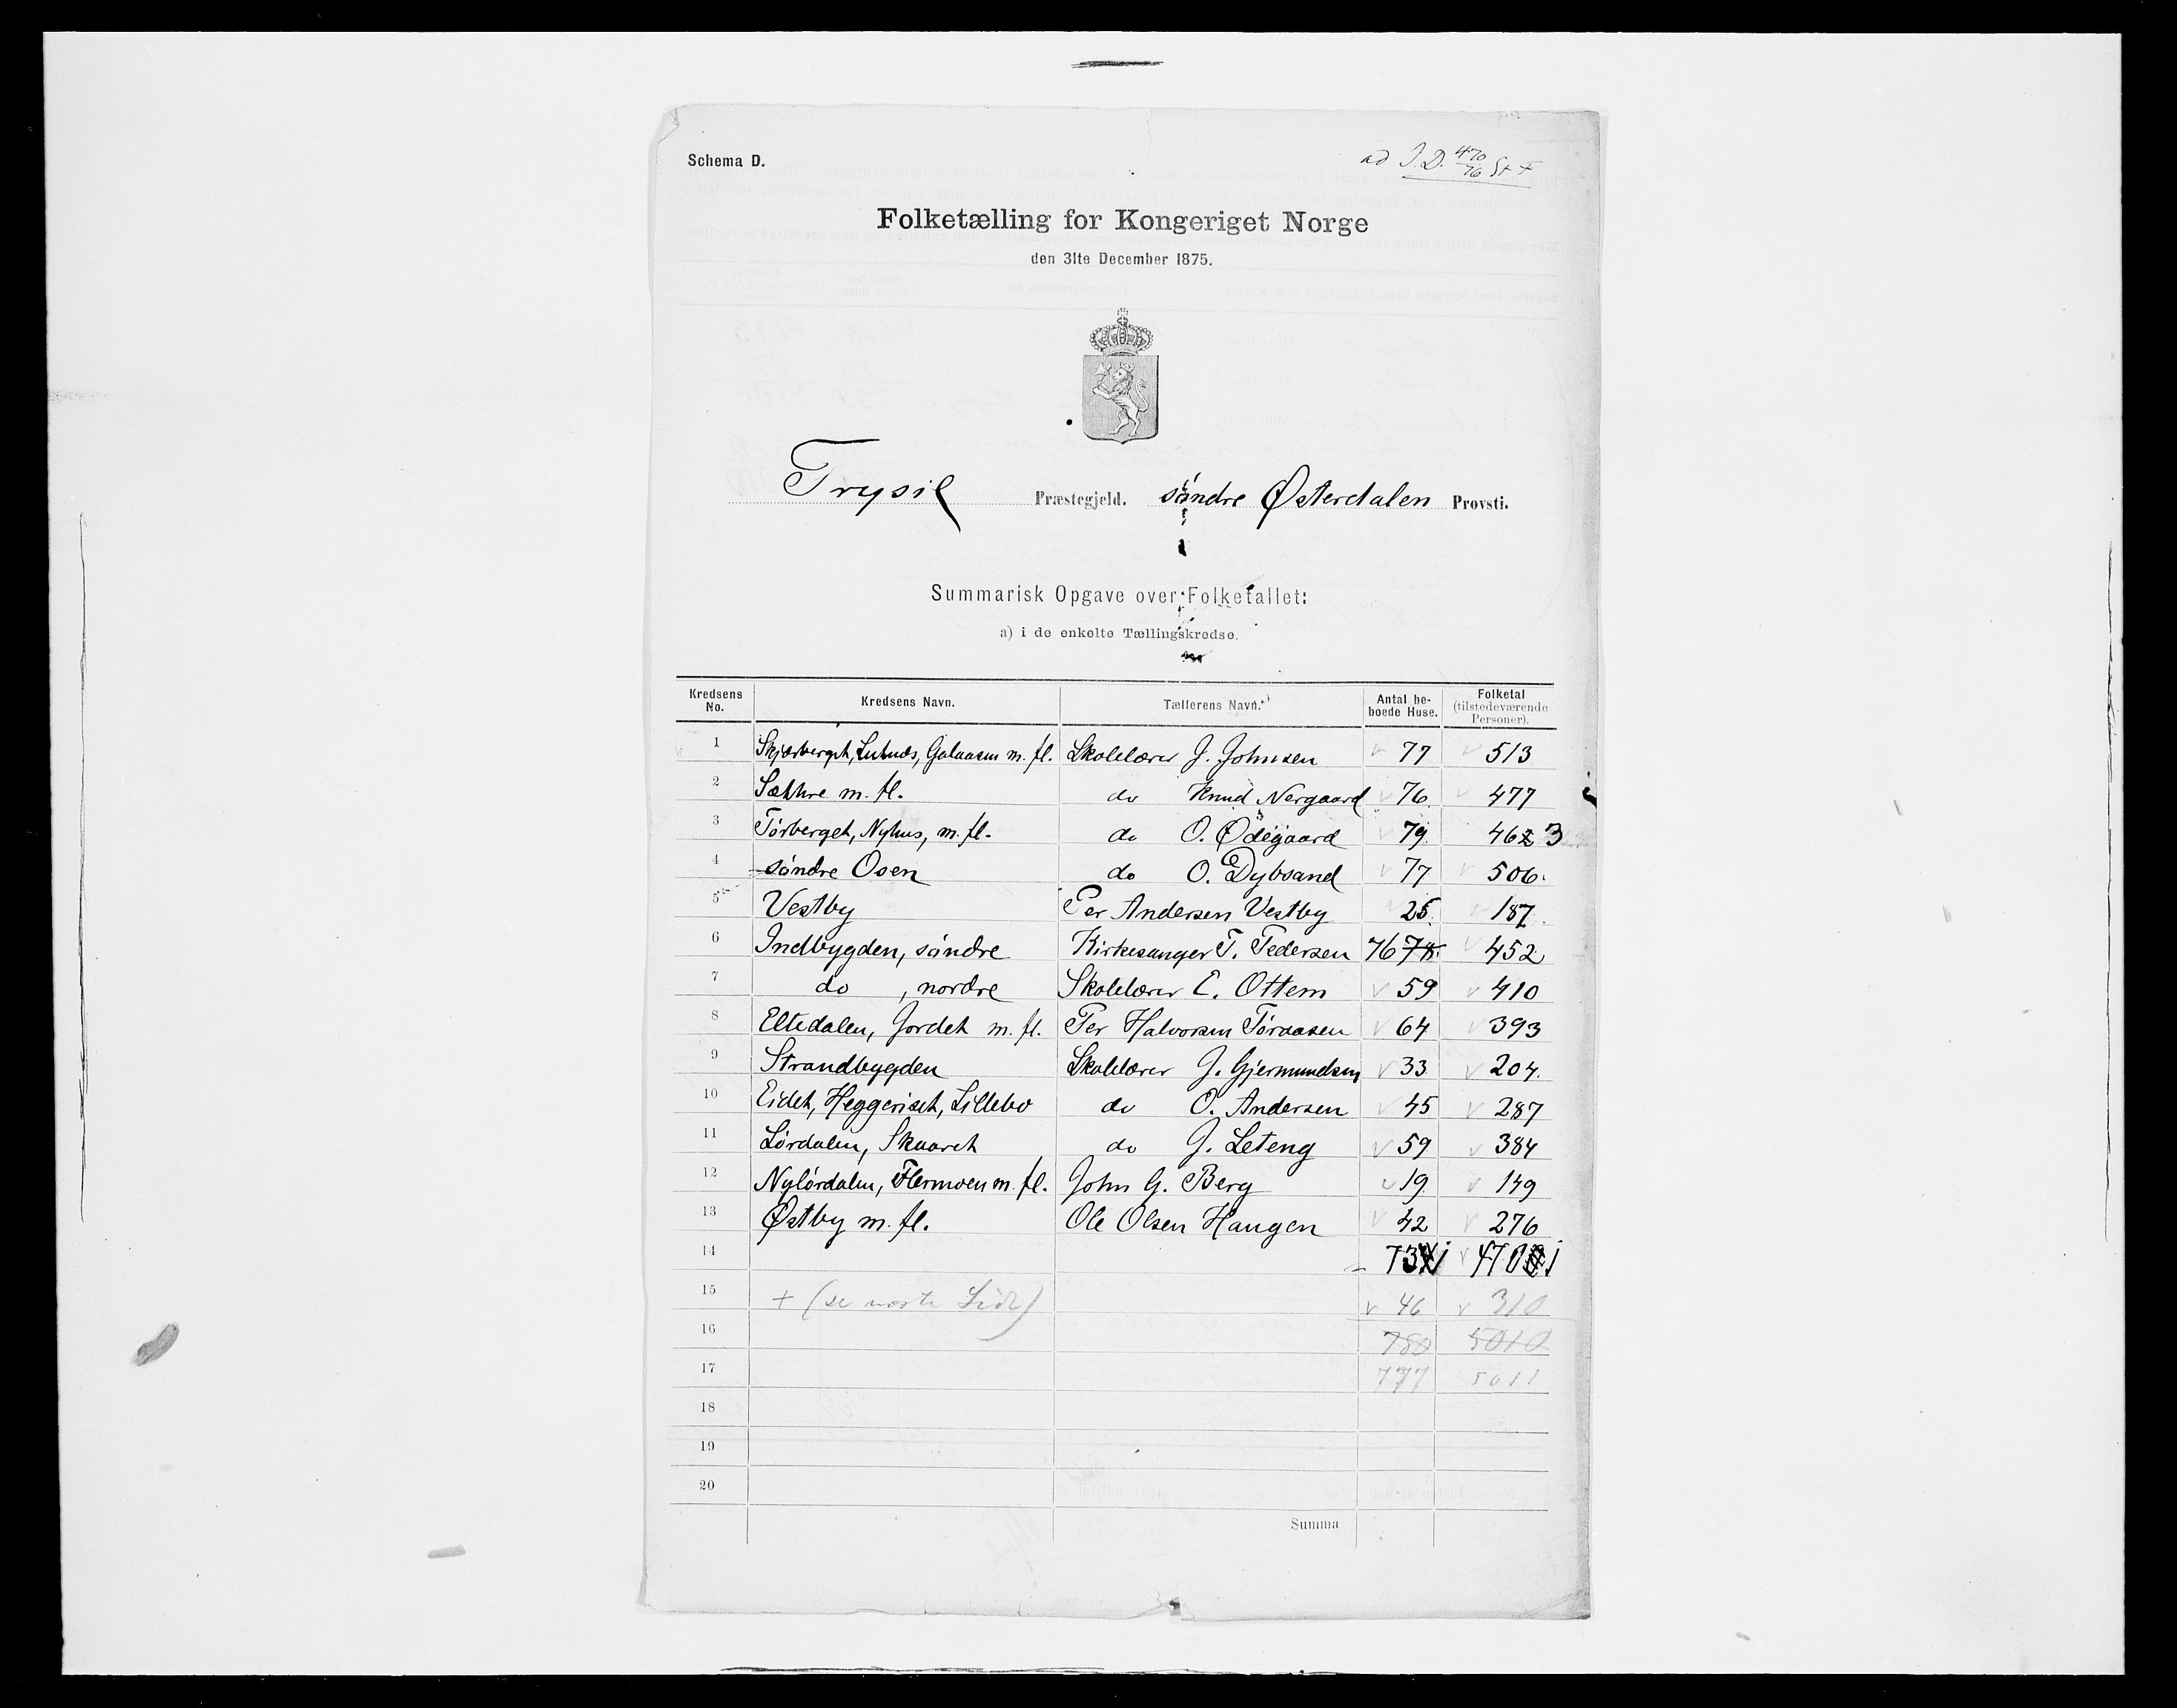 Schema D.
ad J.D. 470/76 St F
Folketælling for Kongeriget Norge
den 31te December 1875.
Trysil Præstegjeld. söndre Østerdalen Provsti.
Summarisk Opgave over Folketallet:
a) i de enkelte Tællingskredse.
Kredsens No. Kredsens Navn. Tællerens Navn. Antal beboede Huse. Folketal (tilstedeværende Personer).
1 Skjærberget, Lutnæs, Galaasen m. fl. Skolelærer J. Johnsen 77 513
2 Sæthre m. fl. do Knud Nergaard 76 477
3 Törberget, Nyhus, m. fl. do O. Ødegaard 79. 462 3
4 söndre Osen do O. Dybsand 77 506.
5 Vestby Per Andersen Vestby 25. 187.
6 Indbygden, söndre Kirkesanger P. Pedersen 76 78. 452
7 do , nordre Skolelærer E. Ottem 59 410
8 Eltedalen, Jordet m. fl. Per Halvorsen Töraasen 64 393
9 Strandbygden Skolelærer J. Gjermundsen 33 204.
10 Eidet, Heggeriset, Lillebo do O. Andersen 45 287
11 Lördalen, Skaaret do J. Leteng 59 384
12 Nylördalen, Flermoen m. fl. John G. Berg 19. 149
13 Østby m. fl. Ole Olsen Haugen 42 276
14 731 4701
15 + (se næste Side) 46 310
16 780 5010
17 777 5011
18
19
20
Summa